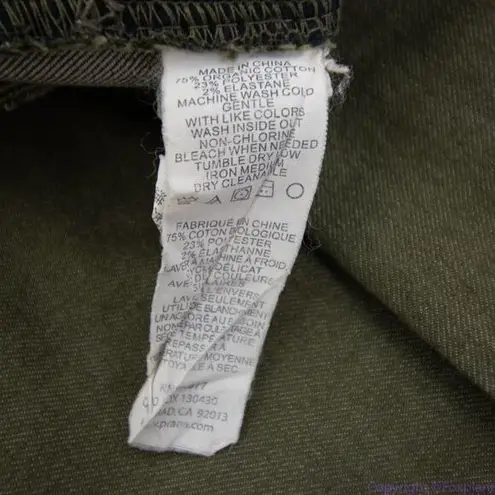 MADE IN CHINA
75% ORGANIC COTTON
23% POLYESTER
2% ELASTANE
MACHINE WASH COLD
GENTLE
WITH LIKE COLORS
WASH INSIDE OUT
NON-CHLORINE
BLEACH WHEN NEEDED
TUMBLE DRY LOW
IRON MEDIUM
DRY CLEANABLE
FABRIQUÉ EN CHINE
75% COTON BIOLOGIQUE
23% POLYESTER
2% ÉLASTHANNE
LAVER À MACHINE À FROID
DÉLICAT
COULEURS
L'ENVERS
SEULEMENT
UTILE
AU BESOIN
NON PAR
TEMPÉRATURE
REPASSER À
MOYENNE
À SEC
130430
CA 92013
prana.com